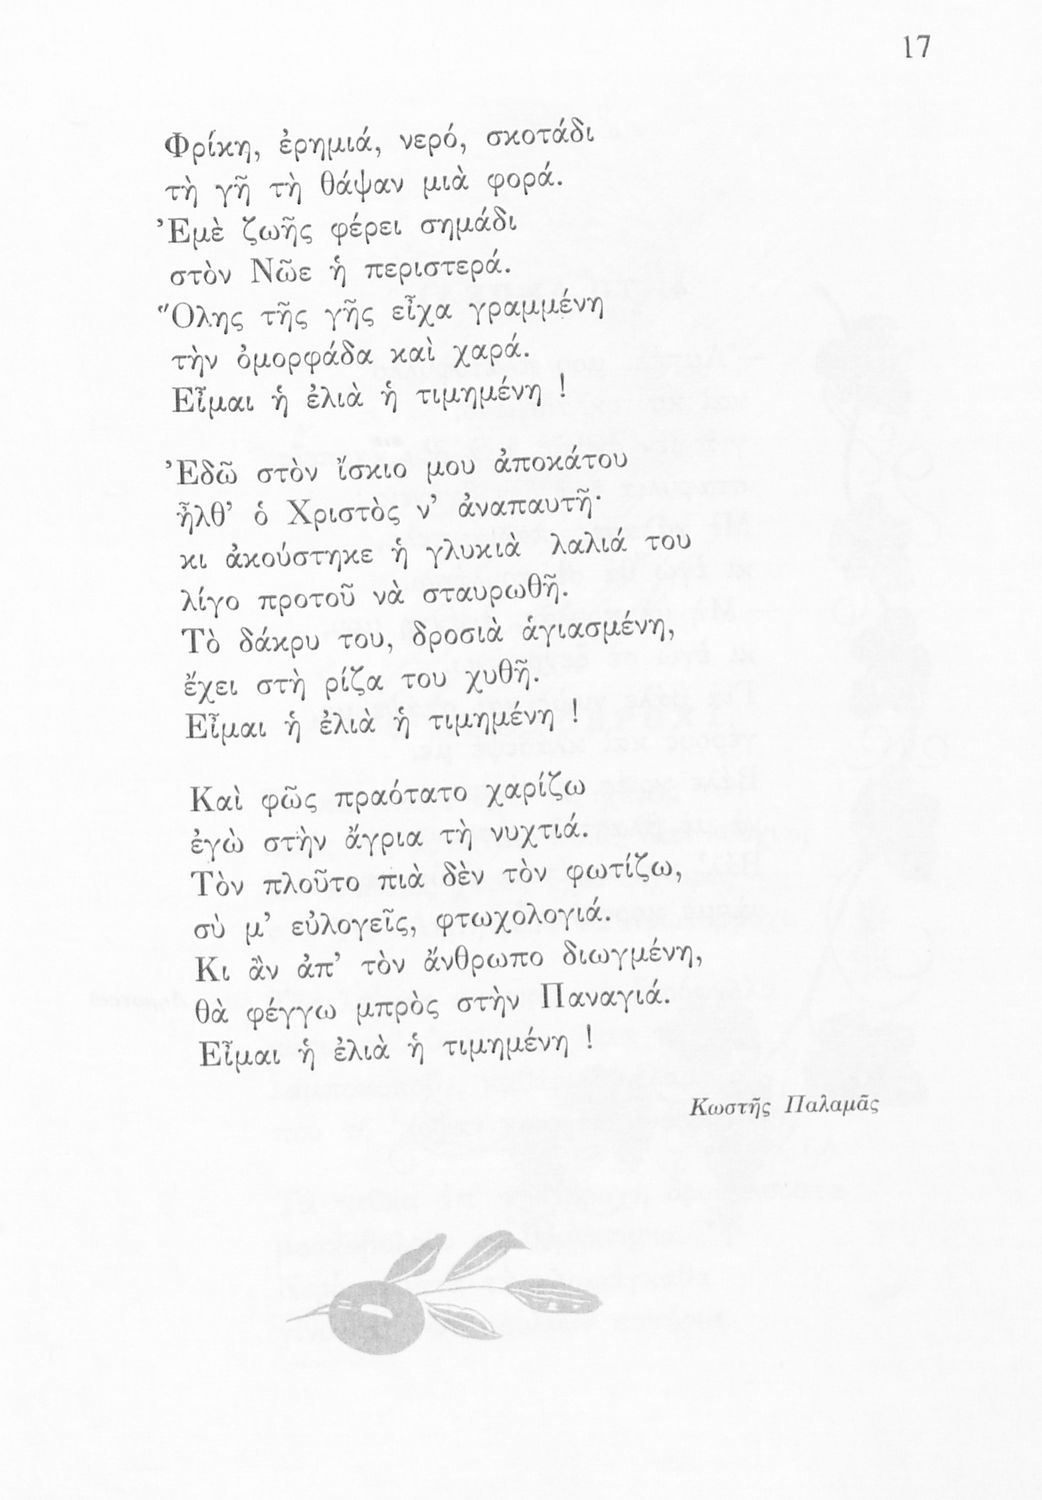 17
Φρίκη, ἐρημιά, νερό, σκοτάδι
τὴ γῆ τὴ θάψαν μιὰ φορά.
Ἐμὲ ζωῆς φέρει σημάδι
στὸν Νῶε ἡ περιστερά.
Ὅλης τῆς γῆς εἶχα γραμμένη
τὴν ὀμορφάδα καὶ χαρά.
Εἶμαι ἡ ἐλιὰ ἡ τιμημένη !
Ἐδῶ στὸν ἴσκιο μου ἀποκάτου
ἦλθ’ ὁ Χριστὸς ν’ ἀναπαυτῆ·
κι ἀκούστηκε ἡ γλυκιὰ λαλιά του
λίγο προτοῦ νὰ σταυρωθῆ.
Τὸ δάκρυ του, δροσιὰ ἁγιασμένη,
ἔχει στὴ ρίζα του χυθῆ.
Εἶμαι ἡ ἐλιὰ ἡ τιμημένη !
Καὶ φῶς πραότατο χαρίζω
ἐγὼ στὴν ἄγρια τὴ νυχτιά.
Τὸν πλοῦτο πιὰ δὲν τὸν φωτίζω,
σὺ μ’ εὐλογεῖς, φτωχολογιά.
Κι ἂν ἀπ’ τὸν ἄνθρωπο διωγμένη,
θὰ φέγγω μπρὸς στὴν Παναγιά.
Εἶμαι ἡ ἐλιὰ ἡ τιμημένη !
Κωστῆς Παλαμᾶς